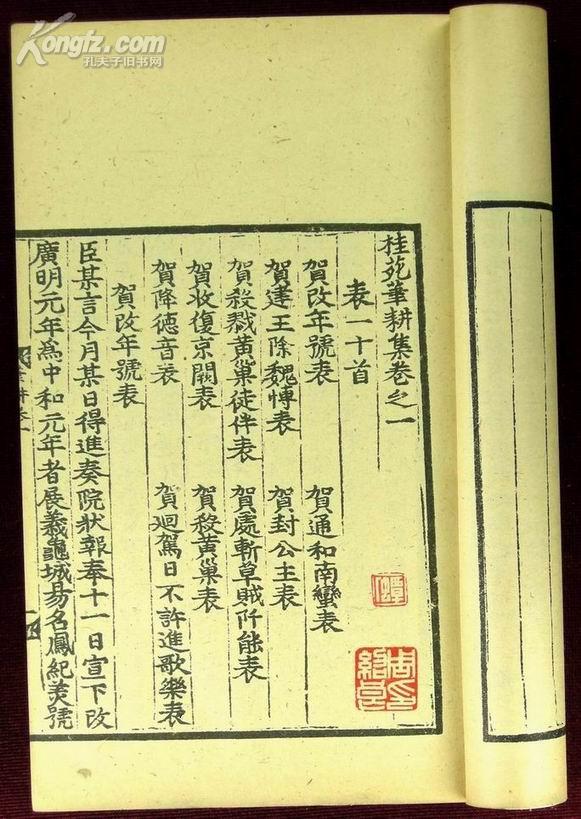 Kongfz.com
孔夫子旧书网
桂苑筆耕集卷之一
表一十首
賀改年號表 賀通和南蠻表
賀建王除魏博表 賀封公主表
賀殺戮黃巢徒伴表 賀處斬草賊阡能表
賀收復京闕表 賀殺黃巢表
賀降德音表 賀廻駕日不許進歌樂表
賀改年號表
臣某言今月某日得進奏院狀報奉十一日宣下改
廣明元年爲中和元年者展義龜城易名鳳紀美號